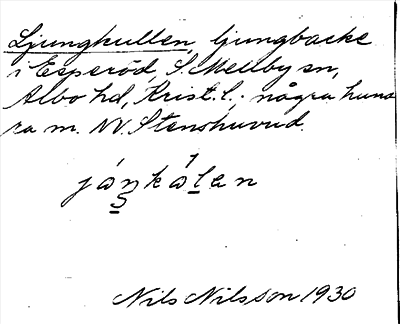 Ljungkullen, ljungbacke
i Esperöd, S. Mellby sn,
Albo hd, Krist. l.; några hund
ra m. NV. Stenshuvud.
Nils Nilsson 1930